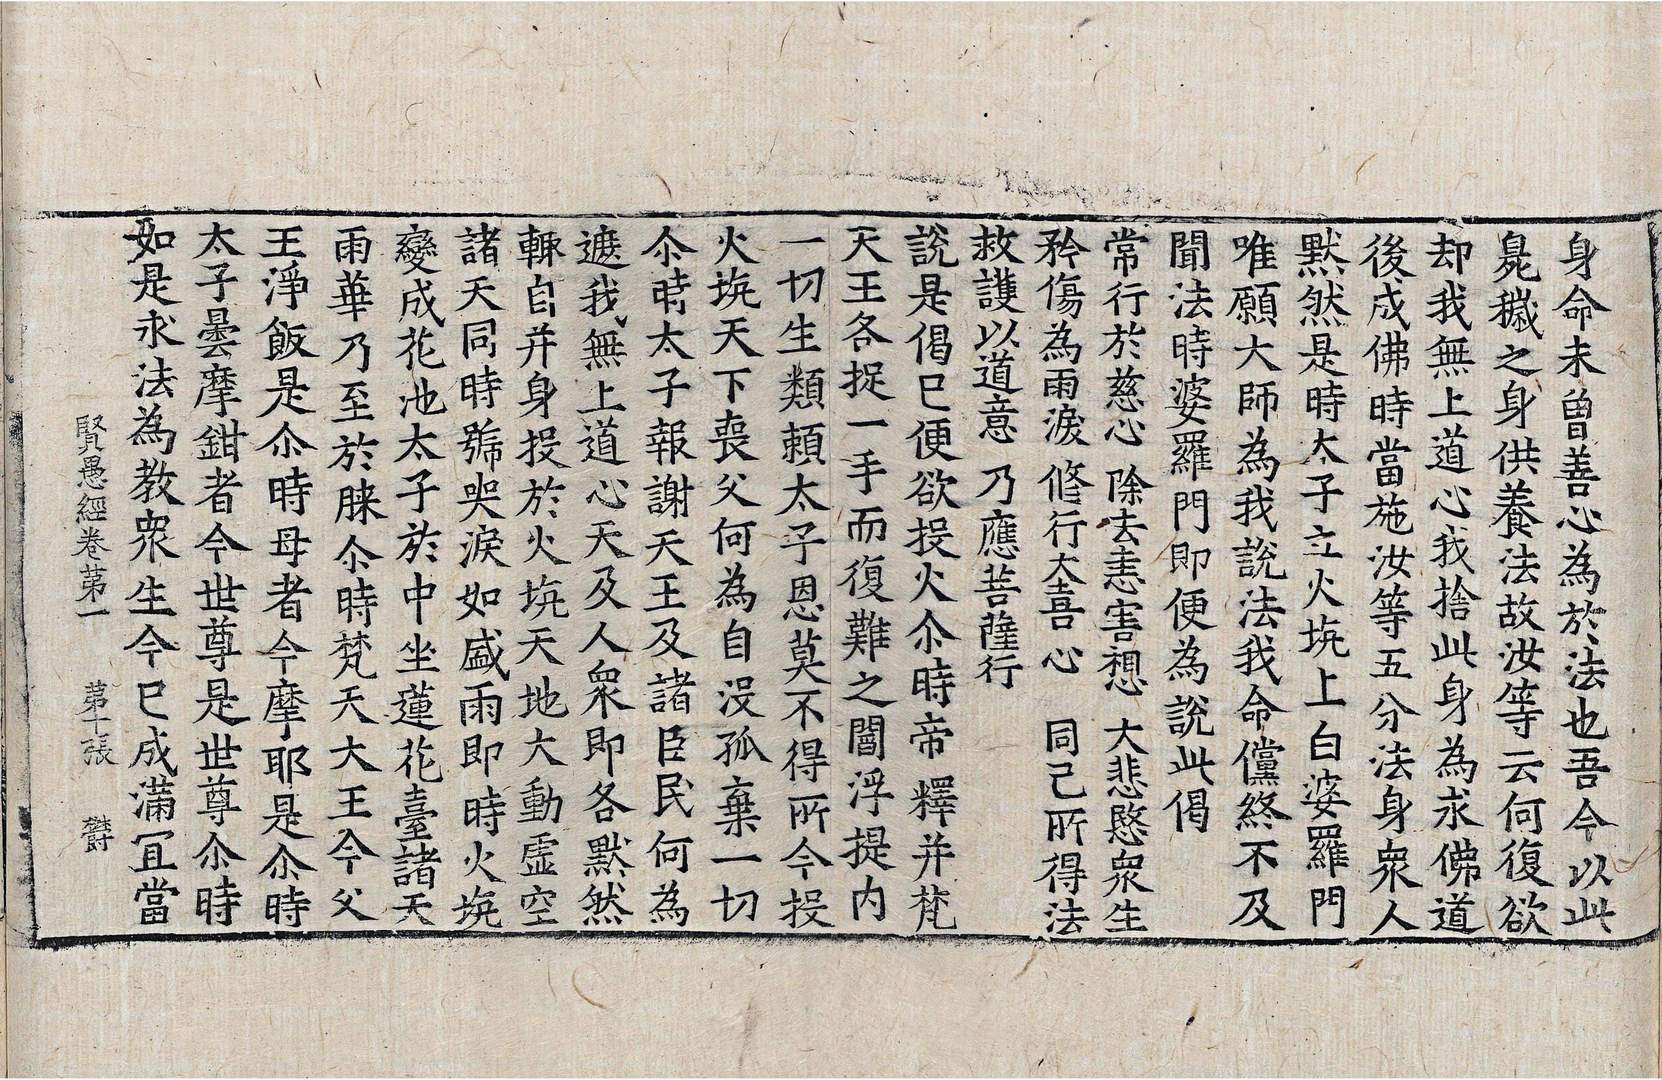 身命未曾善心為於法也吾今以此
臭穢之身供養法故汝等云何復欲
却我無上道心我捨此身為求佛道
後成佛時當施汝等五分法身衆人
默然是時太子立火坑上白婆羅門
唯願大師為我說法我命儻終不及
聞法時婆羅門即便為說此偈
常行於慈心 除去恚害想 大悲愍衆生
矜傷為雨淚 修行大喜心 同己所得法
救護以道意 乃應菩薩行
說是偈已便欲投火尒時帝釋并梵
天王各捉一手而復難之閻浮提内
一切生類賴太子恩莫不得所今投
火坑天下喪父何為自沒孤棄一切
尒時太子報謝天王及諸臣民何為
遮我無上道心天及人衆即各默然
輙自并身投於火坑天地大動虛空
諸天同時號哭淚如盛雨即時火坑
變成花池太子於中坐蓮花臺諸天
雨華乃至於膝尒時梵天大王今父
王淨飯是尒時母者今摩耶是尒時
太子曇摩鉗者今世尊是世尊尒時
如是求法為教衆生今已成滿冝當
賢愚經卷第一 第十張 欝